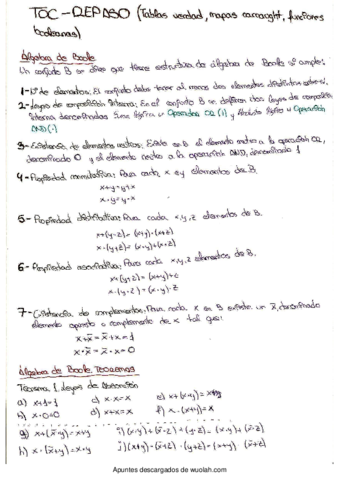 TOC - REPASO (Tablas verdad, mapas carnaught, funciones
booleanas)
Álgebra de Boole
Un conjunto B se dice que tiene estructura de álgebra de Boole si cumple:
1- Nº de elementos: El conjunto debe tener al menos dos elementos distintos
2- Leyes de composición interna: En el conjunto B se definen dos leyes de composición
interna denominadas Suma lógica u Operación OR (+) y Producto lógico u Operación
AND (·)
3- Existencia de elementos neutros: Existe en B el elemento neutro a la operación OR,
denominado 0 y el elemento neutro a la operación AND, denominado 1
4- Propiedad conmutativa: Para cada x e y elementos de B.
x+y=y+x
x·y=y·x
5- Propiedad distributiva: Para cada x,y,z elementos de B.
x+(y·z)=(x+y)·(x+z)
x·(y+z)=(x·y)+(x·z)
6- Propiedad asociativa: Para cada x,y,z elementos de B.
x+(y+z)=(x+y)+z
x·(y·z)=(x·y)·z
7- Existencia de complementos: Para cada x en B existe un x̄, denominado
elemento opuesto o complemento de x tal que:
x+x̄=x̄+x=1
x·x̄=x̄·x=0
Álgebra de Boole. Teoremas
Teorema 1. Leyes de absorción
a) x+1=1 c) x·x=x e) x+(x·y)=x
b) x·0=0 d) x+x=x f) x·(x+y)=x
g) x+(x̄·y)=x+y i) (x·y)+(x̄·z)+(y·z)=(x·y)+(x̄·z)
h) x·(x̄+y)=x·y j) (x+y)·(x̄+z)·(y+z)=(x+y)·(x̄+z)
Apuntes descargados de wuolah.com